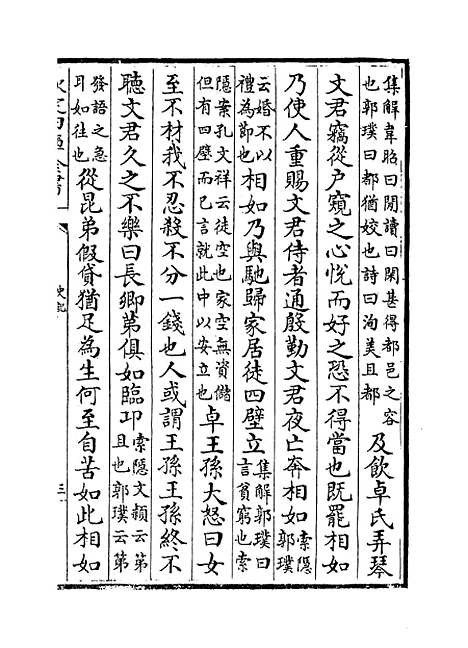 集解韋昭曰閒讀曰閑甚得都邑之容
也郭璞曰都猶姣也詩曰洵美且都
及飲卓氏弄琴
文君竊從户窺之心悦而好之恐不得當也既罷相如
乃使人重賜文君侍者通殷勤文君夜亡奔相如
索隱
郭璞
云婚不以
禮為節也
相如乃與馳歸家居徒四壁立
集解郭璞曰
言貧窮也索
隱案孔文祥云徒空也家空無資儲
但有四壁而已言就此中以安立也
卓王孫大怒曰女
至不材我不忍殺不分一錢也人或謂王孫王孫終不
聽文君久之不樂曰長卿第俱如臨卭
索隱文頴云第
且也郭璞云第
發語之急
耳如往也
從昆弟假貸猶足為生何至自苦如此相如